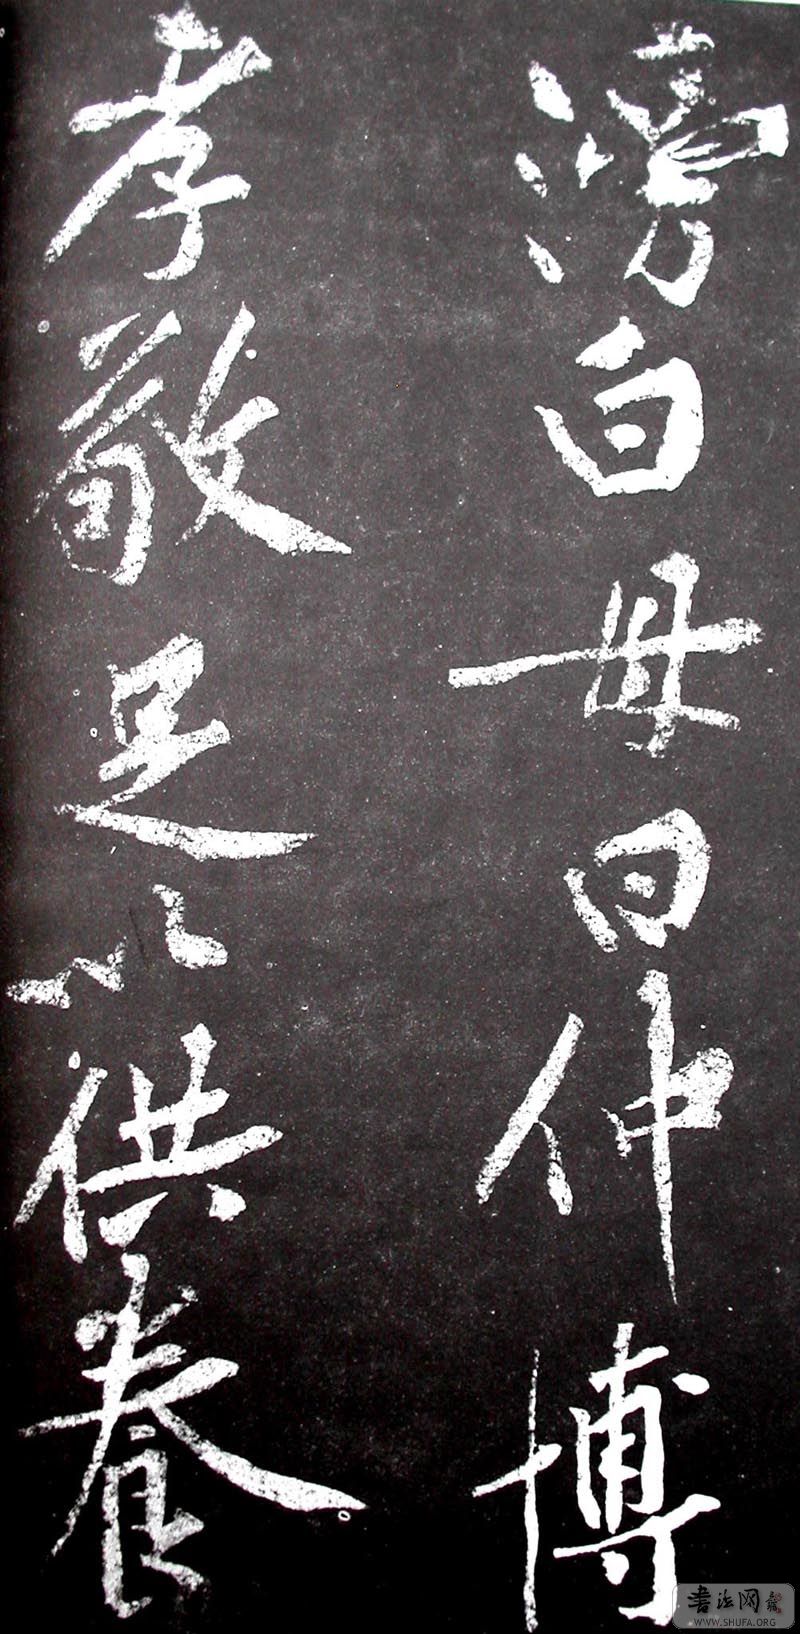 滂白母曰仲博
孝敬足以供養
書法网
WWW.SHUFA.ORG